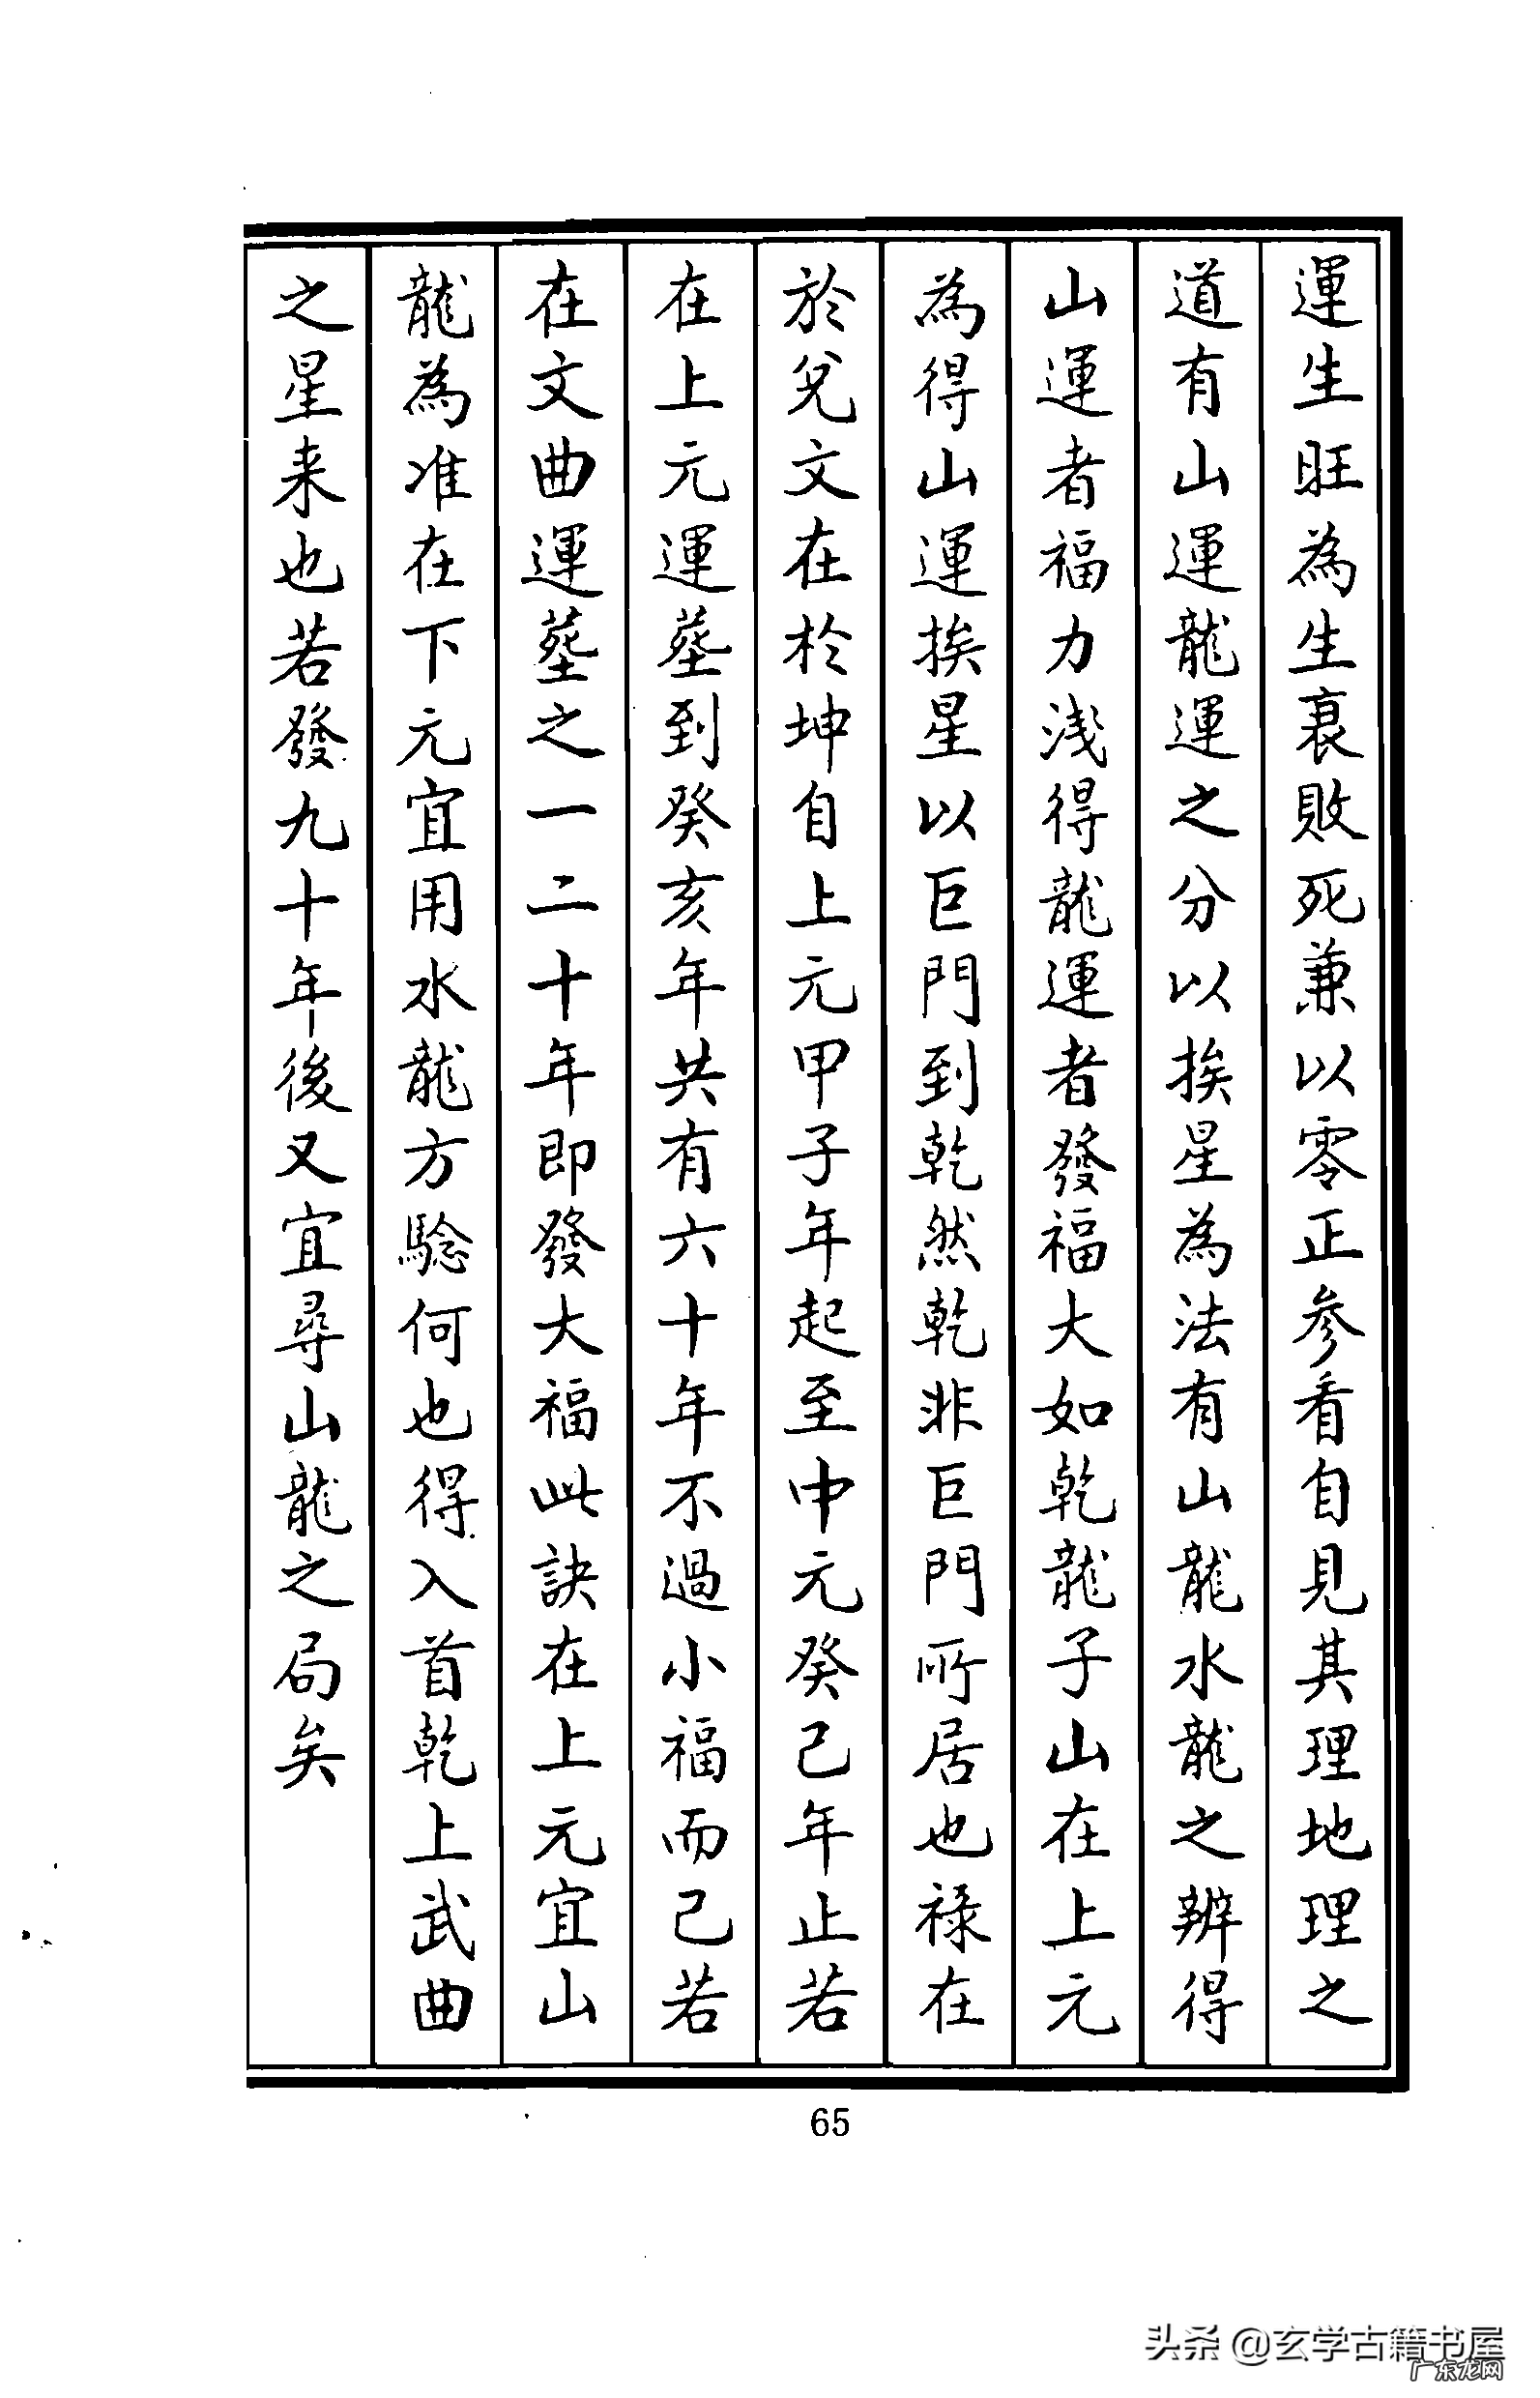 運生旺為生衰敗死兼以零正参看自見其理地理之
道有山運龍運之分以挨星為法有山龍水龍之辨得
山運者福力浅得龍運者發福大如乾龍子山在上元
為得山運挨星以巨門到乾然乾非巨門所居也祿在
於兌文在於坤自上元甲子年起至中元癸己年止若
在上元運塟到癸亥年共有六十年不過小福而己若
在文曲運塟之一二十年即發大福此訣在上元宜山
龍為准在下元宜用水龍方騐何也得入首乾上武曲
之星来也若發九十年後又宜尋山龍之局矣
65
头条 @玄学古籍书屋
广东龙网